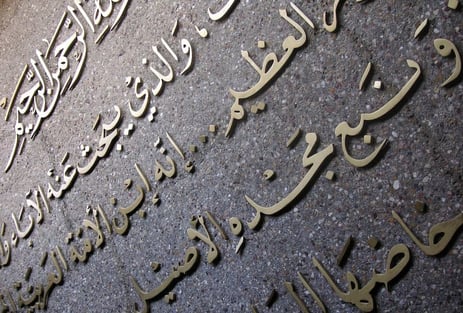 الله الرحمن الرحيم
والذي يبحث عنه
العظيم ... إنه ابن الأمة العربية
ونبع مجده الأصيل